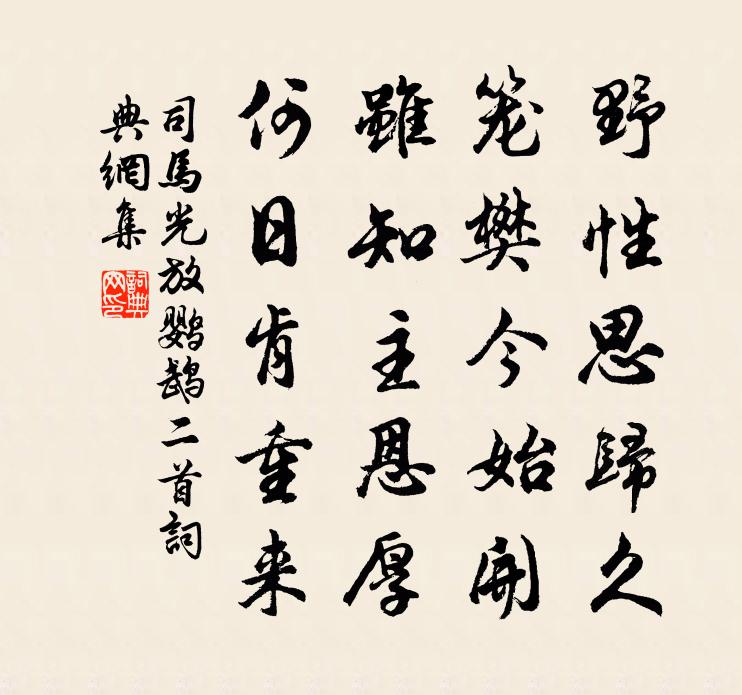 野性思歸久
笼樊今始開
雖知主恩厚
何日肯重来
司馬光放鹦鹉二首詞
典網集
詞典
网印